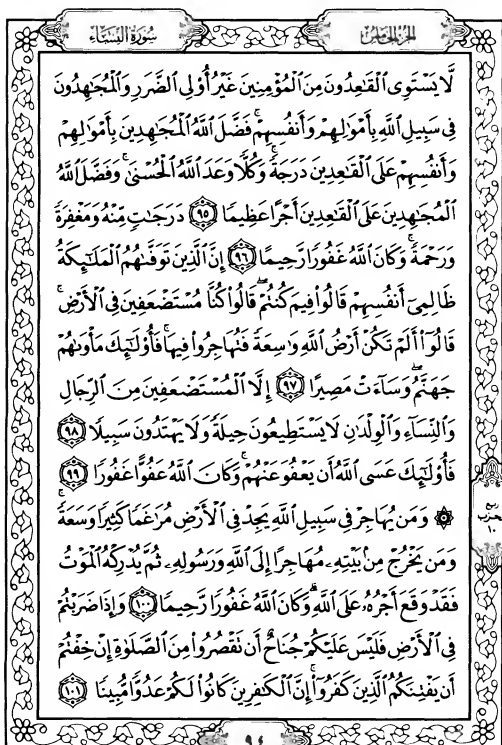 سُورَةُ النِّسَاءِ
الجُزْءُ الخَامِسُ
لَّا يَسْتَوِى ٱلْقَٰعِدُونَ مِنَ ٱلْمُؤْمِنِينَ غَيْرُ أُو۟لِى ٱلضَّرَرِ وَٱلْمُجَٰهِدُونَ
فِى سَبِيلِ ٱللَّهِ بِأَمْوَٰلِهِمْ وَأَنفُسِهِمْ ۚ فَضَّلَ ٱللَّهُ ٱلْمُجَٰهِدِينَ بِأَمْوَٰلِهِمْ
وَأَنفُسِهِمْ عَلَى ٱلْقَٰعِدِينَ دَرَجَةً ۚ وَكُلًّا وَعَدَ ٱللَّهُ ٱلْحُسْنَىٰ ۚ وَفَضَّلَ ٱللَّهُ
ٱلْمُجَٰهِدِينَ عَلَى ٱلْقَٰعِدِينَ أَجْرًا عَظِيمًا ٩٥ دَرَجَٰتٍ مِّنْهُ وَمَغْفِرَةً
وَرَحْمَةً ۚ وَكَانَ ٱللَّهُ غَفُورًا رَّحِيمًا ٩٦ إِنَّ ٱلَّذِينَ تَوَفَّىٰهُمُ ٱلْمَلَٰٓئِكَةُ
ظَالِمِىٓ أَنفُسِهِمْ قَالُوا۟ فِيمَ كُنتُمْ ۖ قَالُوا۟ كُنَّا مُسْتَضْعَفِينَ فِى ٱلْأَرْضِ ۚ
قَالُوٓا۟ أَلَمْ تَكُنْ أَرْضُ ٱللَّهِ وَٰسِعَةً فَتُهَاجِرُوا۟ فِيهَا ۚ فَأُو۟لَٰٓئِكَ مَأْوَىٰهُمْ
جَهَنَّمُ ۖ وَسَآءَتْ مَصِيرًا ٩٧ إِلَّا ٱلْمُسْتَضْعَفِينَ مِنَ ٱلرِّجَالِ
وَٱلنِّسَآءِ وَٱلْوِلْدَٰنِ لَا يَسْتَطِيعُونَ حِيلَةً وَلَا يَهْتَدُونَ سَبِيلًا ٩٨
فَأُو۟لَٰٓئِكَ عَسَى ٱللَّهُ أَن يَعْفُوَ عَنْهُمْ ۚ وَكَانَ ٱللَّهُ عَفُوًّا غَفُورًا ٩٩
۞ وَمَن يُهَاجِرْ فِى سَبِيلِ ٱللَّهِ يَجِدْ فِى ٱلْأَرْضِ مُرَٰغَمًا كَثِيرًا وَسَعَةً ۚ
وَمَن يَخْرُجْ مِنۢ بَيْتِهِۦ مُهَاجِرًا إِلَى ٱللَّهِ وَرَسُولِهِۦ ثُمَّ يُدْرِكْهُ ٱلْمَوْتُ
فَقَدْ وَقَعَ أَجْرُهُۥ عَلَى ٱللَّهِ ۗ وَكَانَ ٱللَّهُ غَفُورًا رَّحِيمًا ١٠٠ وَإِذَا ضَرَبْتُمْ
فِى ٱلْأَرْضِ فَلَيْسَ عَلَيْكُمْ جُنَاحٌ أَن تَقْصُرُوا۟ مِنَ ٱلصَّلَوٰةِ إِنْ خِفْتُمْ
أَن يَفْتِنَكُمُ ٱلَّذِينَ كَفَرُوٓا۟ ۚ إِنَّ ٱلْكَٰفِرِينَ كَانُوا۟ لَكُمْ عَدُوًّا مُّبِينًا ١٠١
ربع
حزب
١٠
٩٤